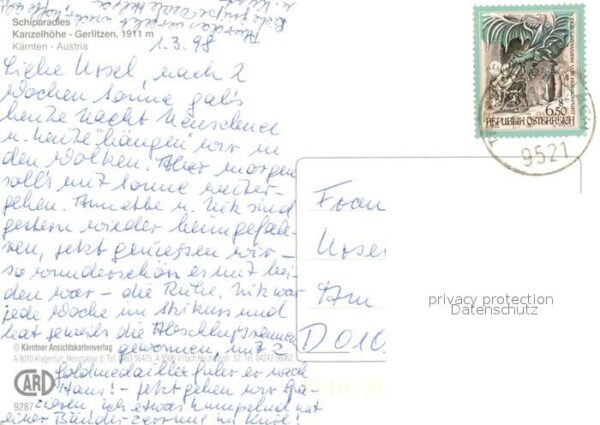 Schiparadies
Kanzelhöhe - Gerlitzen, 1911 m
Kärnten - Austria
1.3.98
Liebe Ursel, nach 2
Wochen Sonne gab's
heute Nacht Neuschnee
u. heute hängen wir in
den Wolken. Aber morgen
soll's mit Sonne weiter-
gehen. Annette u. Nik sind
gestern wieder heimgefah-
ren, jetzt geniessen wir -
so wunderschön es mit bei-
den war - die Ruhe. Nik war
jede Woche im Skikurs und
hat jeweils die Abschlußrennen
gewonnen, mit 2
Goldmedaillen fuhr er nach
Haus! - Jetzt gehen wir spa-
zieren, ich etwas humpelnd mit
einer Bänderzerrung im Knie!
© Kärntner Ansichtskartenverlag
A 9010 Klagenfurt,
CARD
9287
6.50
REPUBLIK ÖSTERREICH
9521
Frau
Ursel
Am
D 010
privacy protection
Datenschutz